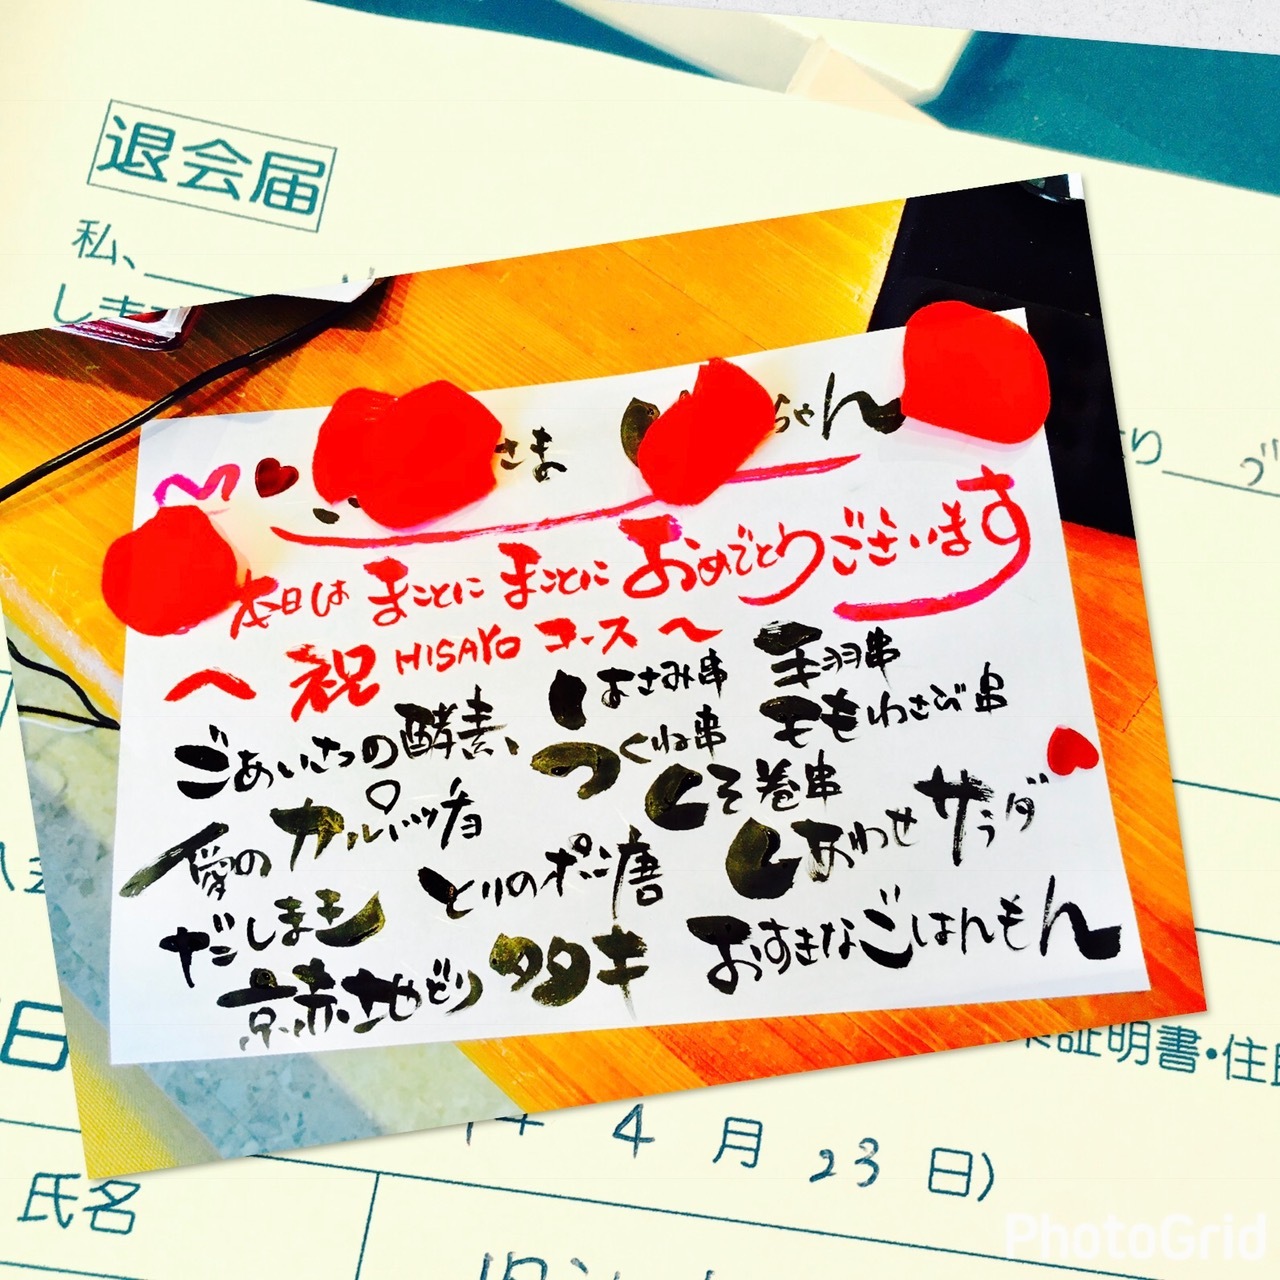 退会届
私、
しま
り
さま
ちゃん
本日は まことに まことに おめでとうございます
〜 祝 HISAYO コース 〜
ごあいさつの酵素、
愛の カルパッチョ
だしまき
京赤地どり タタキ
とりのポン酢
はさみ串
つくね串
しそ巻串
手羽串
モモわさび串
しあわせ サラダ
おすきなごはんもん
証明書・住民
年 4 月 23 日)
日
氏名
PhotoGrid